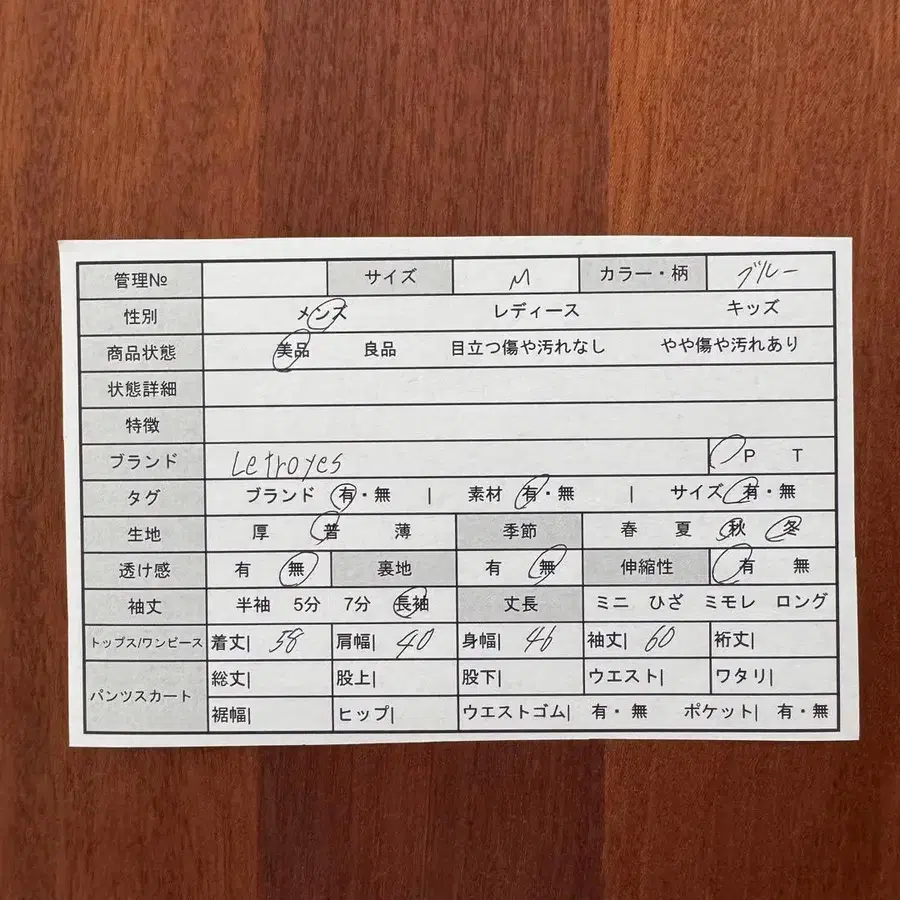 管理№ サイズ M カラー・柄 ブルー
性別 メンズ レディース キッズ
商品状態 美品 良品 目立つ傷や汚れなし やや傷や汚れあり
状態詳細
特徴
ブランド Letroyes P T
タグ ブランド 有・無 | 素材 有・無 | サイズ 有・無
生地 厚 普 薄 季節 春 夏 秋 冬
透け感 有 無 裏地 有 無 伸縮性 有 無
袖丈 半袖 5分 7分 長袖 丈長 ミニ ひざ ミモレ ロング
トップス/ワンピース 着丈| 58 肩幅| 40 身幅| 46 袖丈| 60 裄丈|
パンツスカート 総丈| 股上| 股下| ウエスト| ワタリ|
裾幅| ヒップ| ウエストゴム| 有・無 ポケット| 有・無